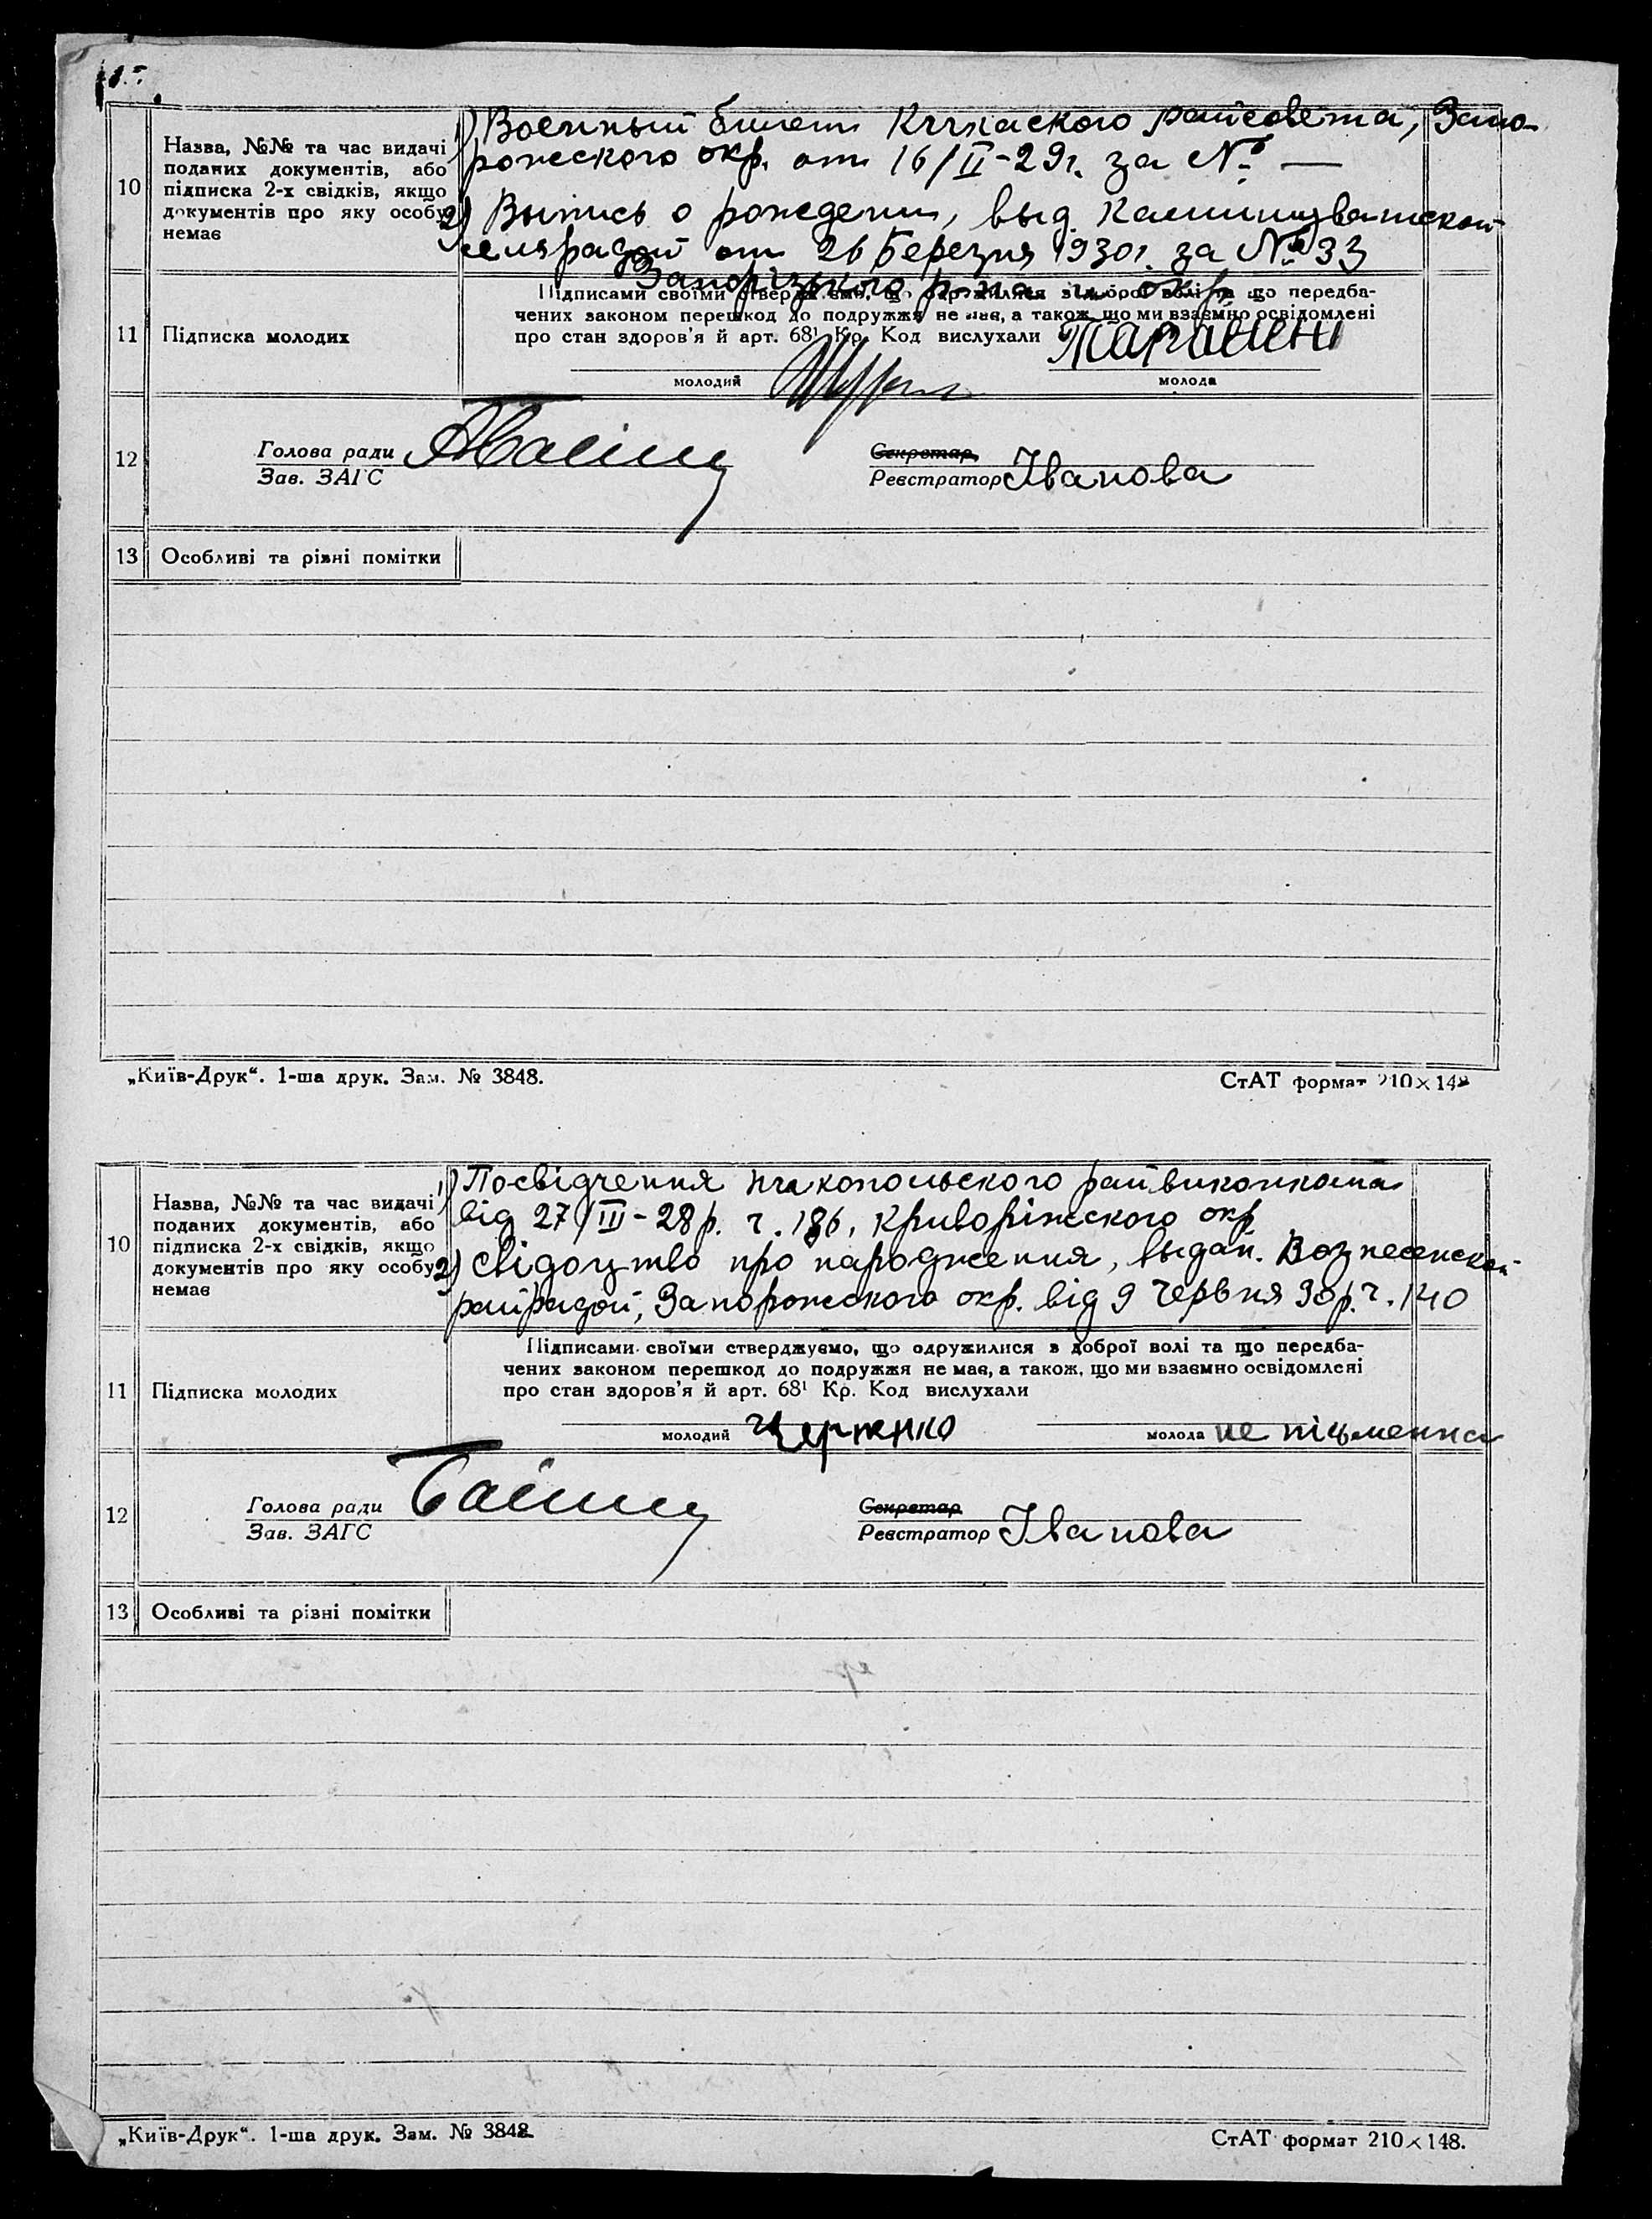 10
Назва, №№ та час видачі
поданих документів, або
підписка 2-х свідків, якщо
документів про яку особу
немає
1) Военный билет Кичкаского райсовета, Запо-
рожского окр. от 16/II-29г. за № —
2) Выпись о рождении, выд.
сельрадой от 26 Березня 1930г. за № 33
Запорізького р-на и окр.
11
Підписка молодих
Підписами своїми стверджуємо, що одружилися з доброї волі та що передба-
чених законом перешкод до подружжя не має, а також, що ми взаємно освідомлені
про стан здоров'я й арт. 68¹ Кр. Код вислухали
молодий
молода
12
Голова ради
Зав. ЗАГС
Секретар
Реєстратор Іванова
13
Особливі та різні помітки
„Київ-Друк“. 1-ша друк. Зам. № 3848.
СтАТ формат 210×148
10
Назва, №№ та час видачі
поданих документів, або
підписка 2-х свідків, якщо
документів про яку особу
немає
1) Посвідчення Никопольского райвиконкома
від 27/III-28р. ч. 186, Криворіжского окр
2) свідоцтво про народження, выдан. Вознесенской
райрадой, Запорожского окр. від 9 Червня 30р. ч. 140
11
Підписка молодих
Підписами своїми стверджуємо, що одружилися з доброї волі та що передба-
чених законом перешкод до подружжя не має, а також, що ми взаємно освідомлені
про стан здоров'я й арт. 68¹ Кр. Код вислухали
молодий
молода не письменна
12
Голова ради
Зав. ЗАГС
Секретар
Реєстратор Іванова
13
Особливі та різні помітки
„Київ-Друк“. 1-ша друк. Зам. № 3848.
СтАТ формат 210×148.